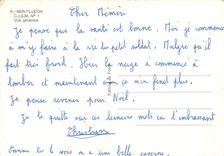 6 - MONTLUÇON
C.I.S.M. N° 1
Vue générale
Cher Mémère
Je pense que la santé est bonne. Moi je commence
à m'y faire à la vie du petit soldat. Malgré qu'il
fait très froid. Hier la neige a commencé à
tomber et maintenant on ne plus.
Je pense revenir pour Noël.
Je te quitte sur ces derniers mots en t'embrassant
Christian
comme tu le vois on a une belle caserne.